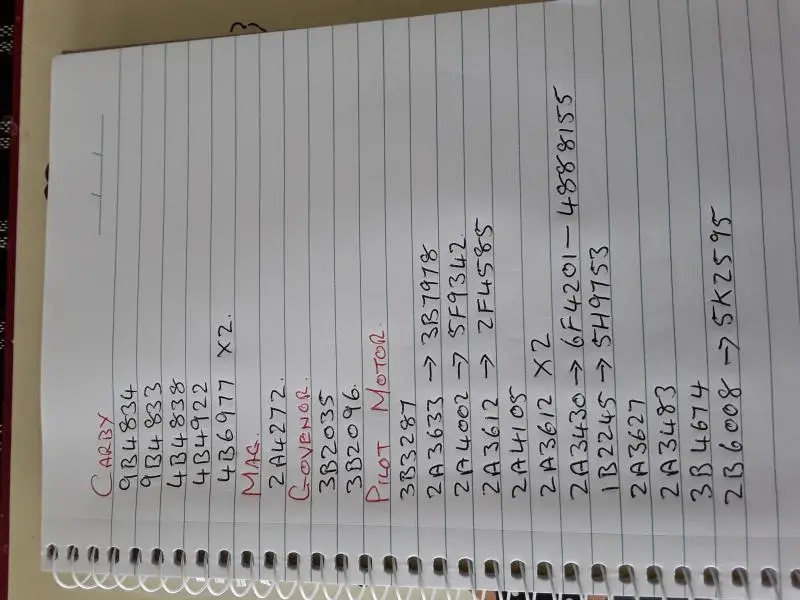 CARBY
9B4834
9B4833
4B4838
4B4922
4B6977 X2.
MAG.
2A4272.
GOVENOR.
3B2035
3B2096.
PILOT MOTOR.
3B3287
2A3633 → 3B7978
2A4002 → 5F9342.
2A3612 → 2F4585
2A4105
2A3612 X2
2A3430 → 6F4201 - 4888155
1B2245 → 5H9753
2A3627
2A3483
3B4674
2B6008 → 5K2595